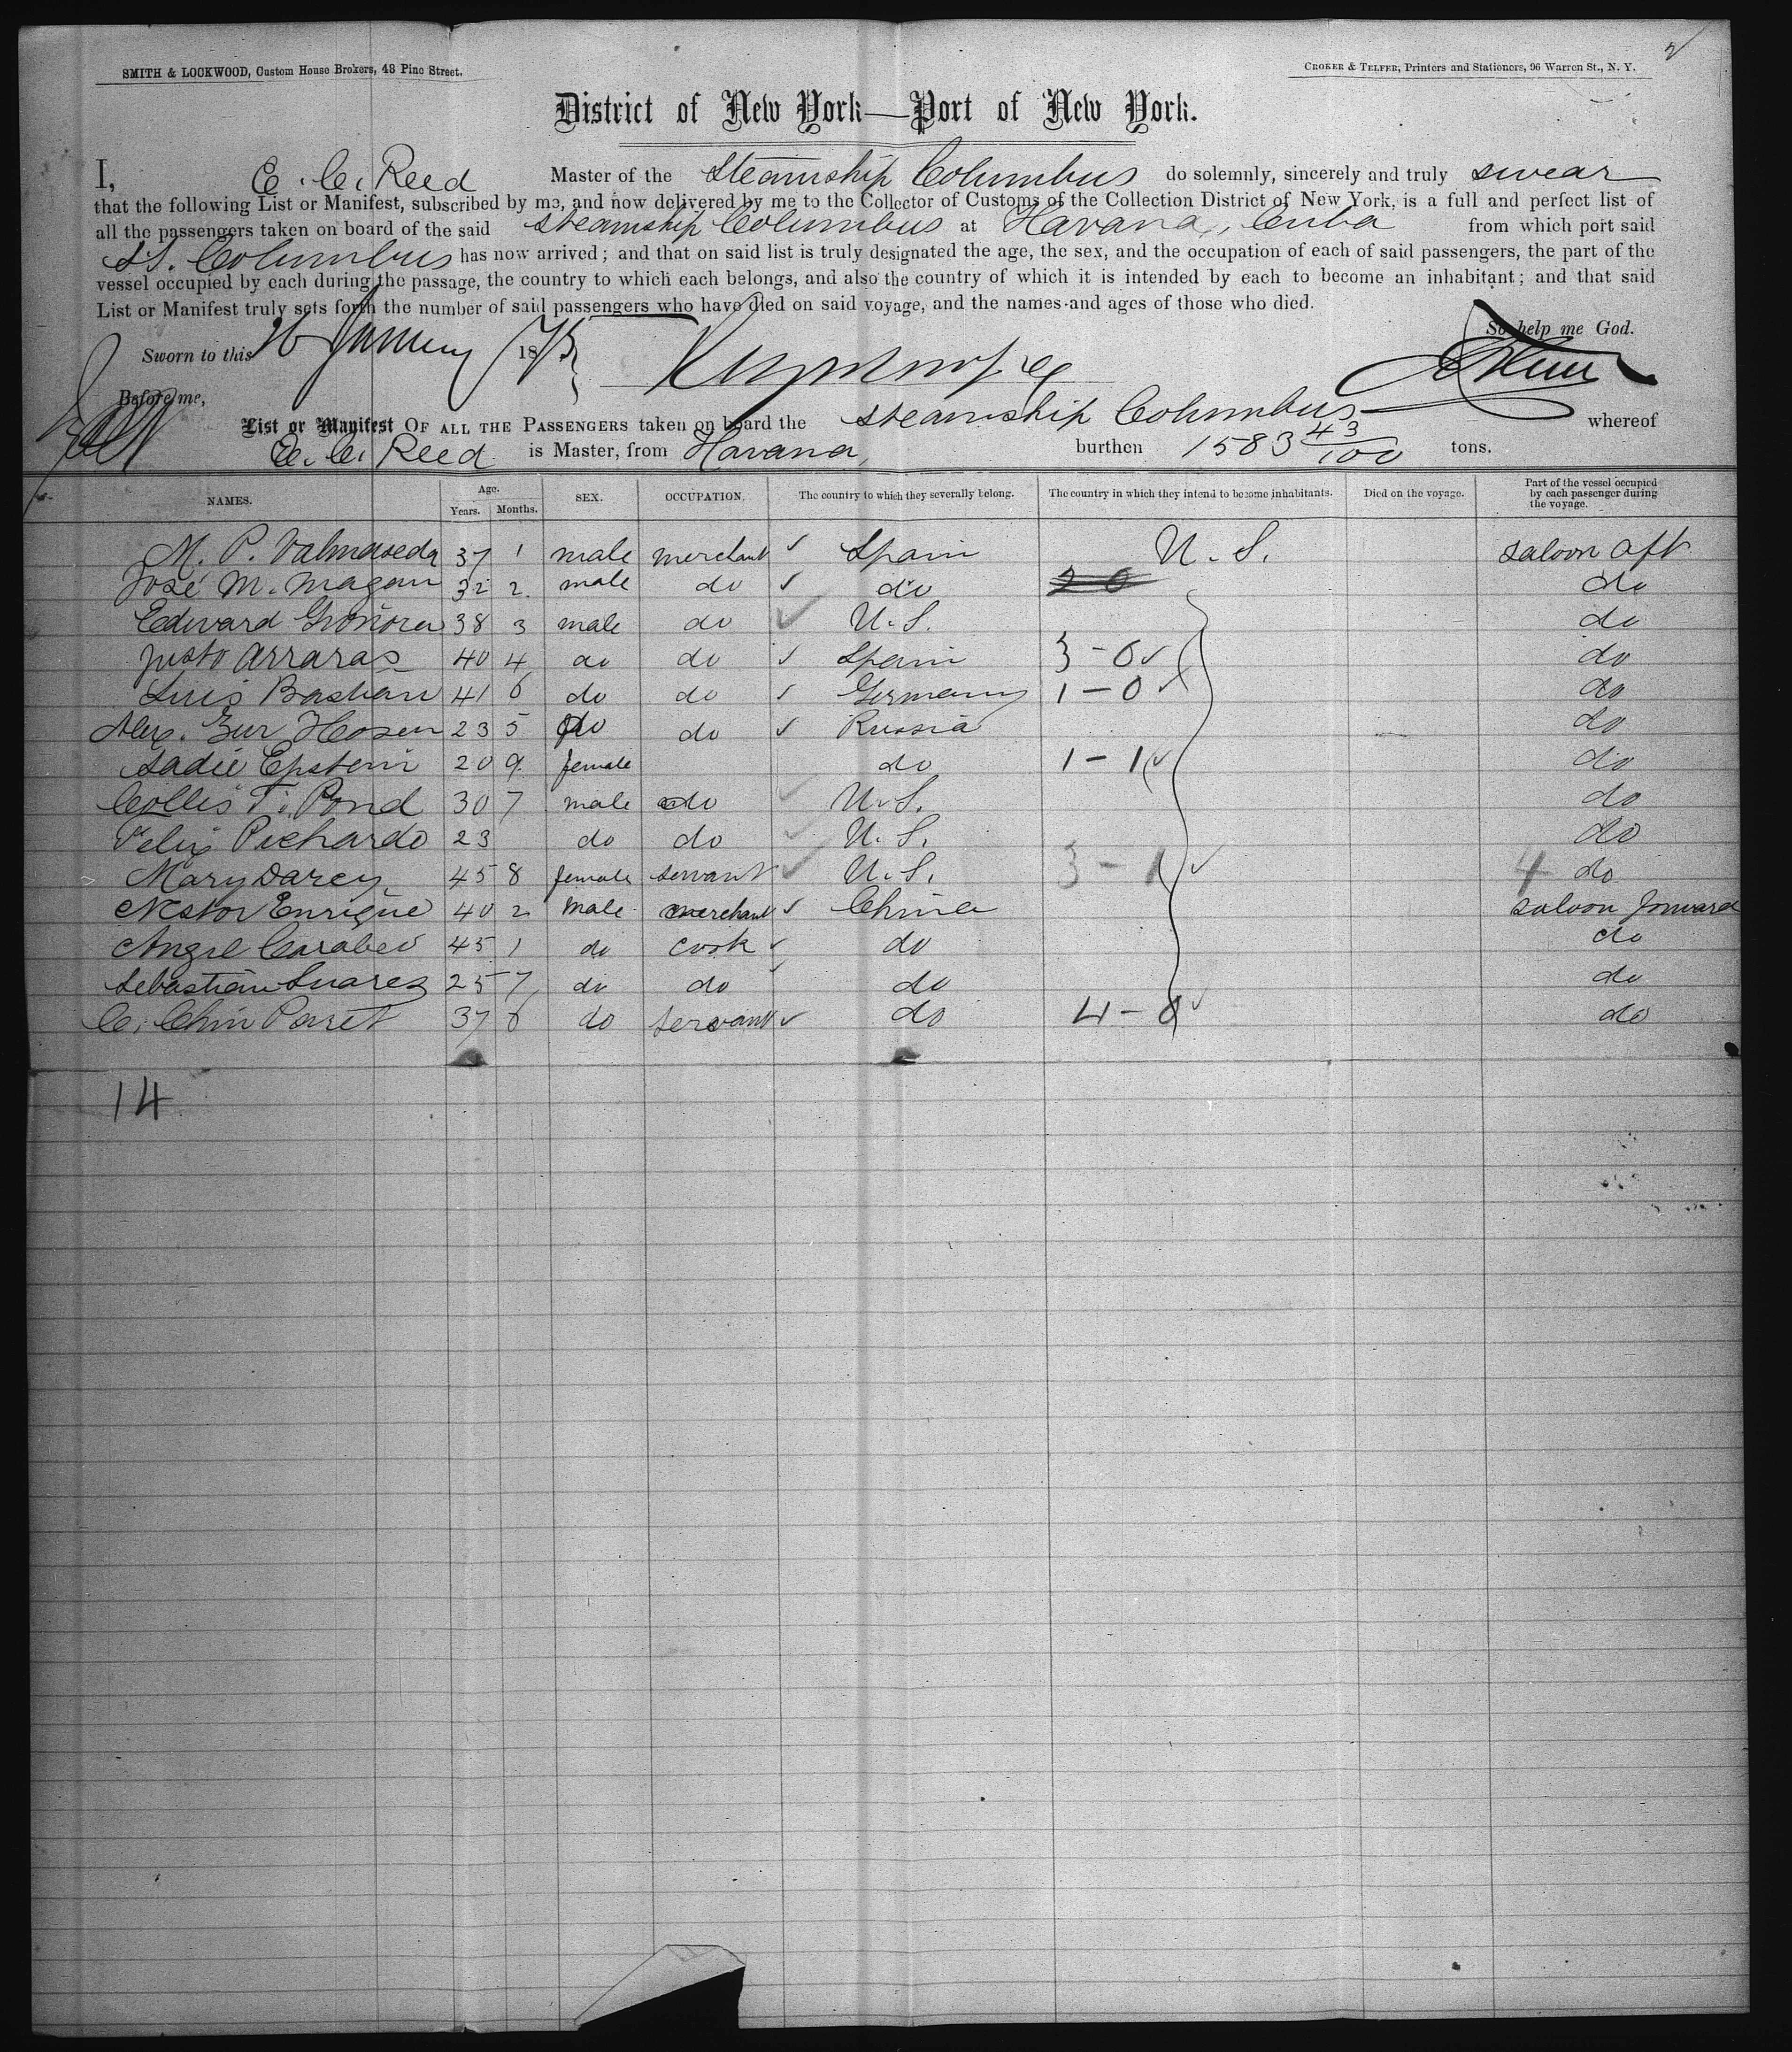 SMITH & LOCKWOOD, Custom House Brokers, 48 Pine Street.
CROKER & TELFER, Printers and Stationers, 96 Warren St., N. Y.
District of New York—Port of New York.
I, E. C. Reed Master of the Steamship Columbus do solemnly, sincerely and truly swear
that the following List or Manifest, subscribed by me, and now delivered by me to the Collector of Customs of the Collection District of New York, is a full and perfect list of
all the passengers taken on board of the said Steamship Columbus at Havana, Cuba from which port said
SS. Columbus has now arrived; and that on said list is truly designated the age, the sex, and the occupation of each of said passengers, the part of the
vessel occupied by each during the passage, the country to which each belongs, and also the country of which it is intended by each to become an inhabitant; and that said
List or Manifest truly sets forth the number of said passengers who have died on said voyage, and the names and ages of those who died.
So help me God.
Sworn to this January 18
Before me,
List or Manifest OF ALL THE PASSENGERS taken on board the Steamship Columbus whereof
E. C. Reed is Master, from Havana, burthen 1583 43/100 tons.
NAMES. Age. Years. Months. SEX. OCCUPATION. The country to which they severally belong. The country in which they intend to become inhabitants. Died on the voyage. Part of the vessel occupied by each passenger during the voyage.
M. P. Valmaseda 37 1 male merchant ✓ Spain U. S. saloon aft
José M. Magan 32 2 male do ✓ do 2 0 do
Edward 38 3 male do ✓ U. S. do
Justo Arraras 40 4 do do ✓ Spain 3 - 0 ✓ do
Luis Bastian 41 6 do do ✓ Germany 1 - 0 ✓ do
Alex. Zur Hosen 23 5 do do ✓ Russia do
Sadie Epstein 20 9 female do 1 - 1 ✓ do
Collis T. Pond 30 7 male do ✓ U. S. do
Felix Pichardo 23 do do ✓ U. S. do
Mary Darcy 45 8 female servant ✓ U. S. 3 - 1 ✓ 4 do
Nestor Enrique 40 2 male merchant ✓ China saloon forward
Angel Carabeo 45 1 do cook ✓ do do
Sebastian Suarez 25 7 do do ✓ do do
C. Chin Paret 37 6 do servant ✓ do 4 - 0 ✓ do
14